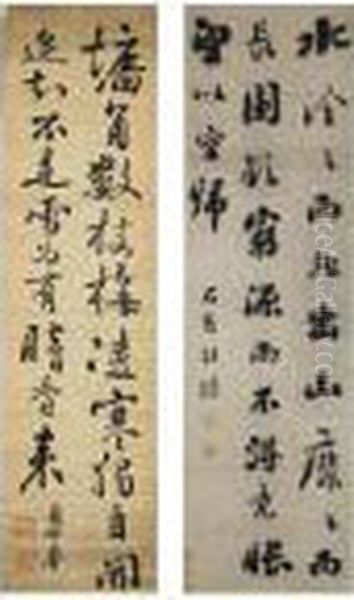 水泠泠而北出山靡靡而
旁圍欲窮源而不得竟悵
望以空歸
墻角數枝梅凌寒獨自開
遙知不是雪為有暗香來